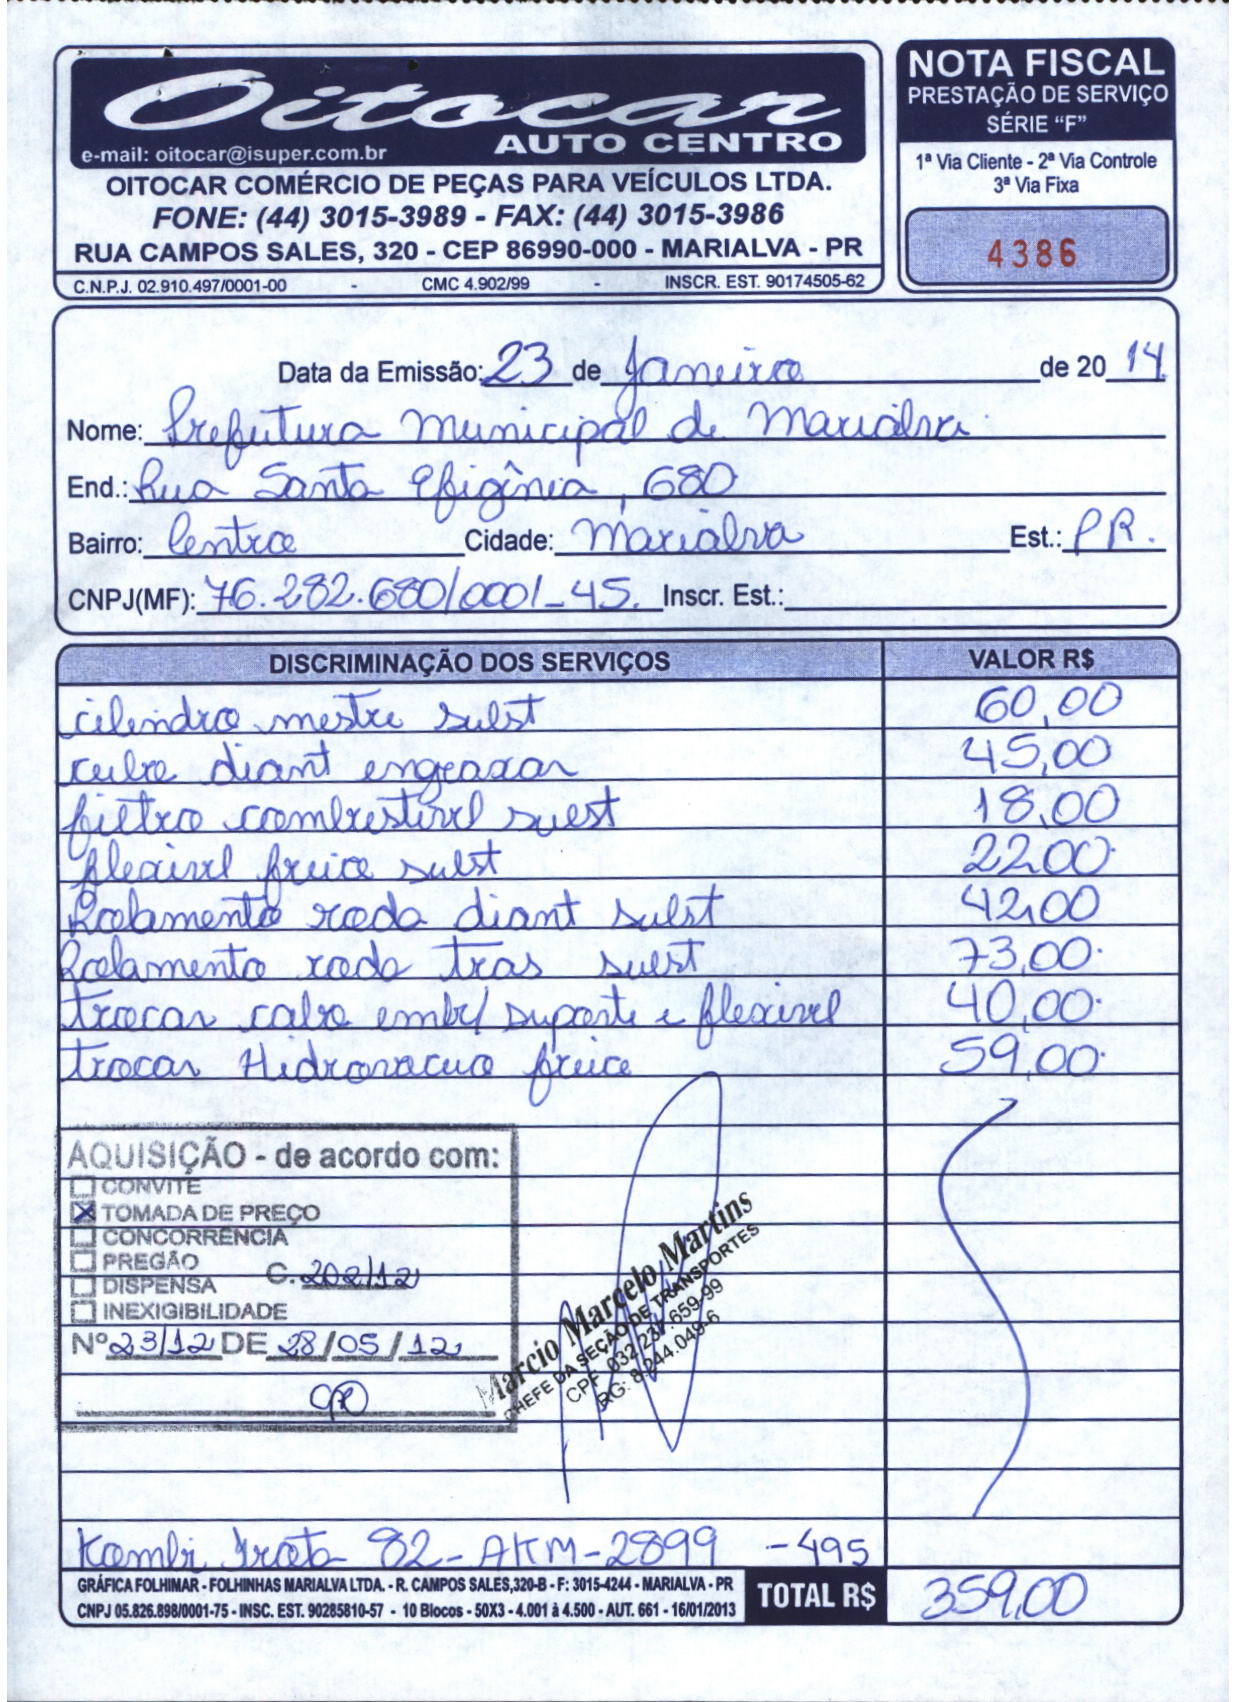 Oitocar
AUTO CENTRO
e-mail: oitocar@isuper.com.br
OITOCAR COMÉRCIO DE PEÇAS PARA VEÍCULOS LTDA.
FONE: (44) 3015-3989 - FAX: (44) 3015-3986
RUA CAMPOS SALES, 320 - CEP 86990-000 - MARIALVA - PR
C.N.P.J. 02.910.497/0001-00 - CMC 4.902/99 - INSCR. EST. 90174505-62
NOTA FISCAL
PRESTAÇÃO DE SERVIÇO
SÉRIE "F"
1ª Via Cliente - 2ª Via Controle
3ª Via Fixa
4386
Data da Emissão: 23 de Janeiro de 2014
Nome: Prefeitura Municipal de Marialva
End.: Rua Santa Efigênia, 680
Bairro: Centro Cidade: Marialva Est.: PR.
CNPJ(MF): 76.282.680/0001-45. Inscr. Est.:
DISCRIMINAÇÃO DOS SERVIÇOS VALOR R$
cilindro mestre subst 60,00
cubo diant engraxar 45,00
filtro combustivel subst 18,00
flexivel freio subst 22,00
Rolamento roda diant subst 42,00
Rolamento roda tras subst 73,00
trocar cabo embr/ suporte e flexivel 40,00
trocar Hidrovacuo freio 59,00
AQUISIÇÃO - de acordo com:
CONVITE
TOMADA DE PREÇO
CONCORRÊNCIA
PREGÃO C. 202/12
DISPENSA
INEXIGIBILIDADE
Nº 23/12 DE 28/05/12
Marcio Marcelo Martins
CHEFE DA SEÇÃO DE TRANSPORTES
CPF 032.237.659-99
RG: 8.244.049-6
Kombi frota 82-AKM-2899 -495
GRÁFICA FOLHIMAR - FOLHINHAS MARIALVA LTDA. - R. CAMPOS SALES,320-B - F: 3015-4244 - MARIALVA - PR
CNPJ 05.826.898/0001-75 - INSC. EST. 90285810-57 - 10 Blocos - 50X3 - 4.001 à 4.500 - AUT. 661 - 16/01/2013
TOTAL R$ 359,00